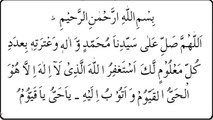 بِسْمِ اللّٰهِ الرَّحْمٰنِ الرَّحِيْمِ
اَللّٰهُمَّ صَلِّ عَلٰى سَيِّدِنَا مُحَمَّدٍ وَّاٰلِهٖ وَعِتْرَتِهٖ بِعَدَدِ
كُلِّ مَعْلُوْمٍ لَّكَ اَسْتَغْفِرُ اللّٰهَ الَّذِىْ لَآ اِلٰهَ اِلَّا هُوَ
الْحَىُّ الْقَيُّوْمُ وَاَتُوْبُ اِلَيْهِ ۔ يَاحَىُّ يَا قَيُّوْمُ